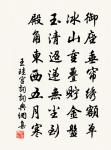 御座垂帘绣额单
冰山重叠贮金盘
玉清迢递无尘到
殿角东西五月寒
王珪宫词词典网集